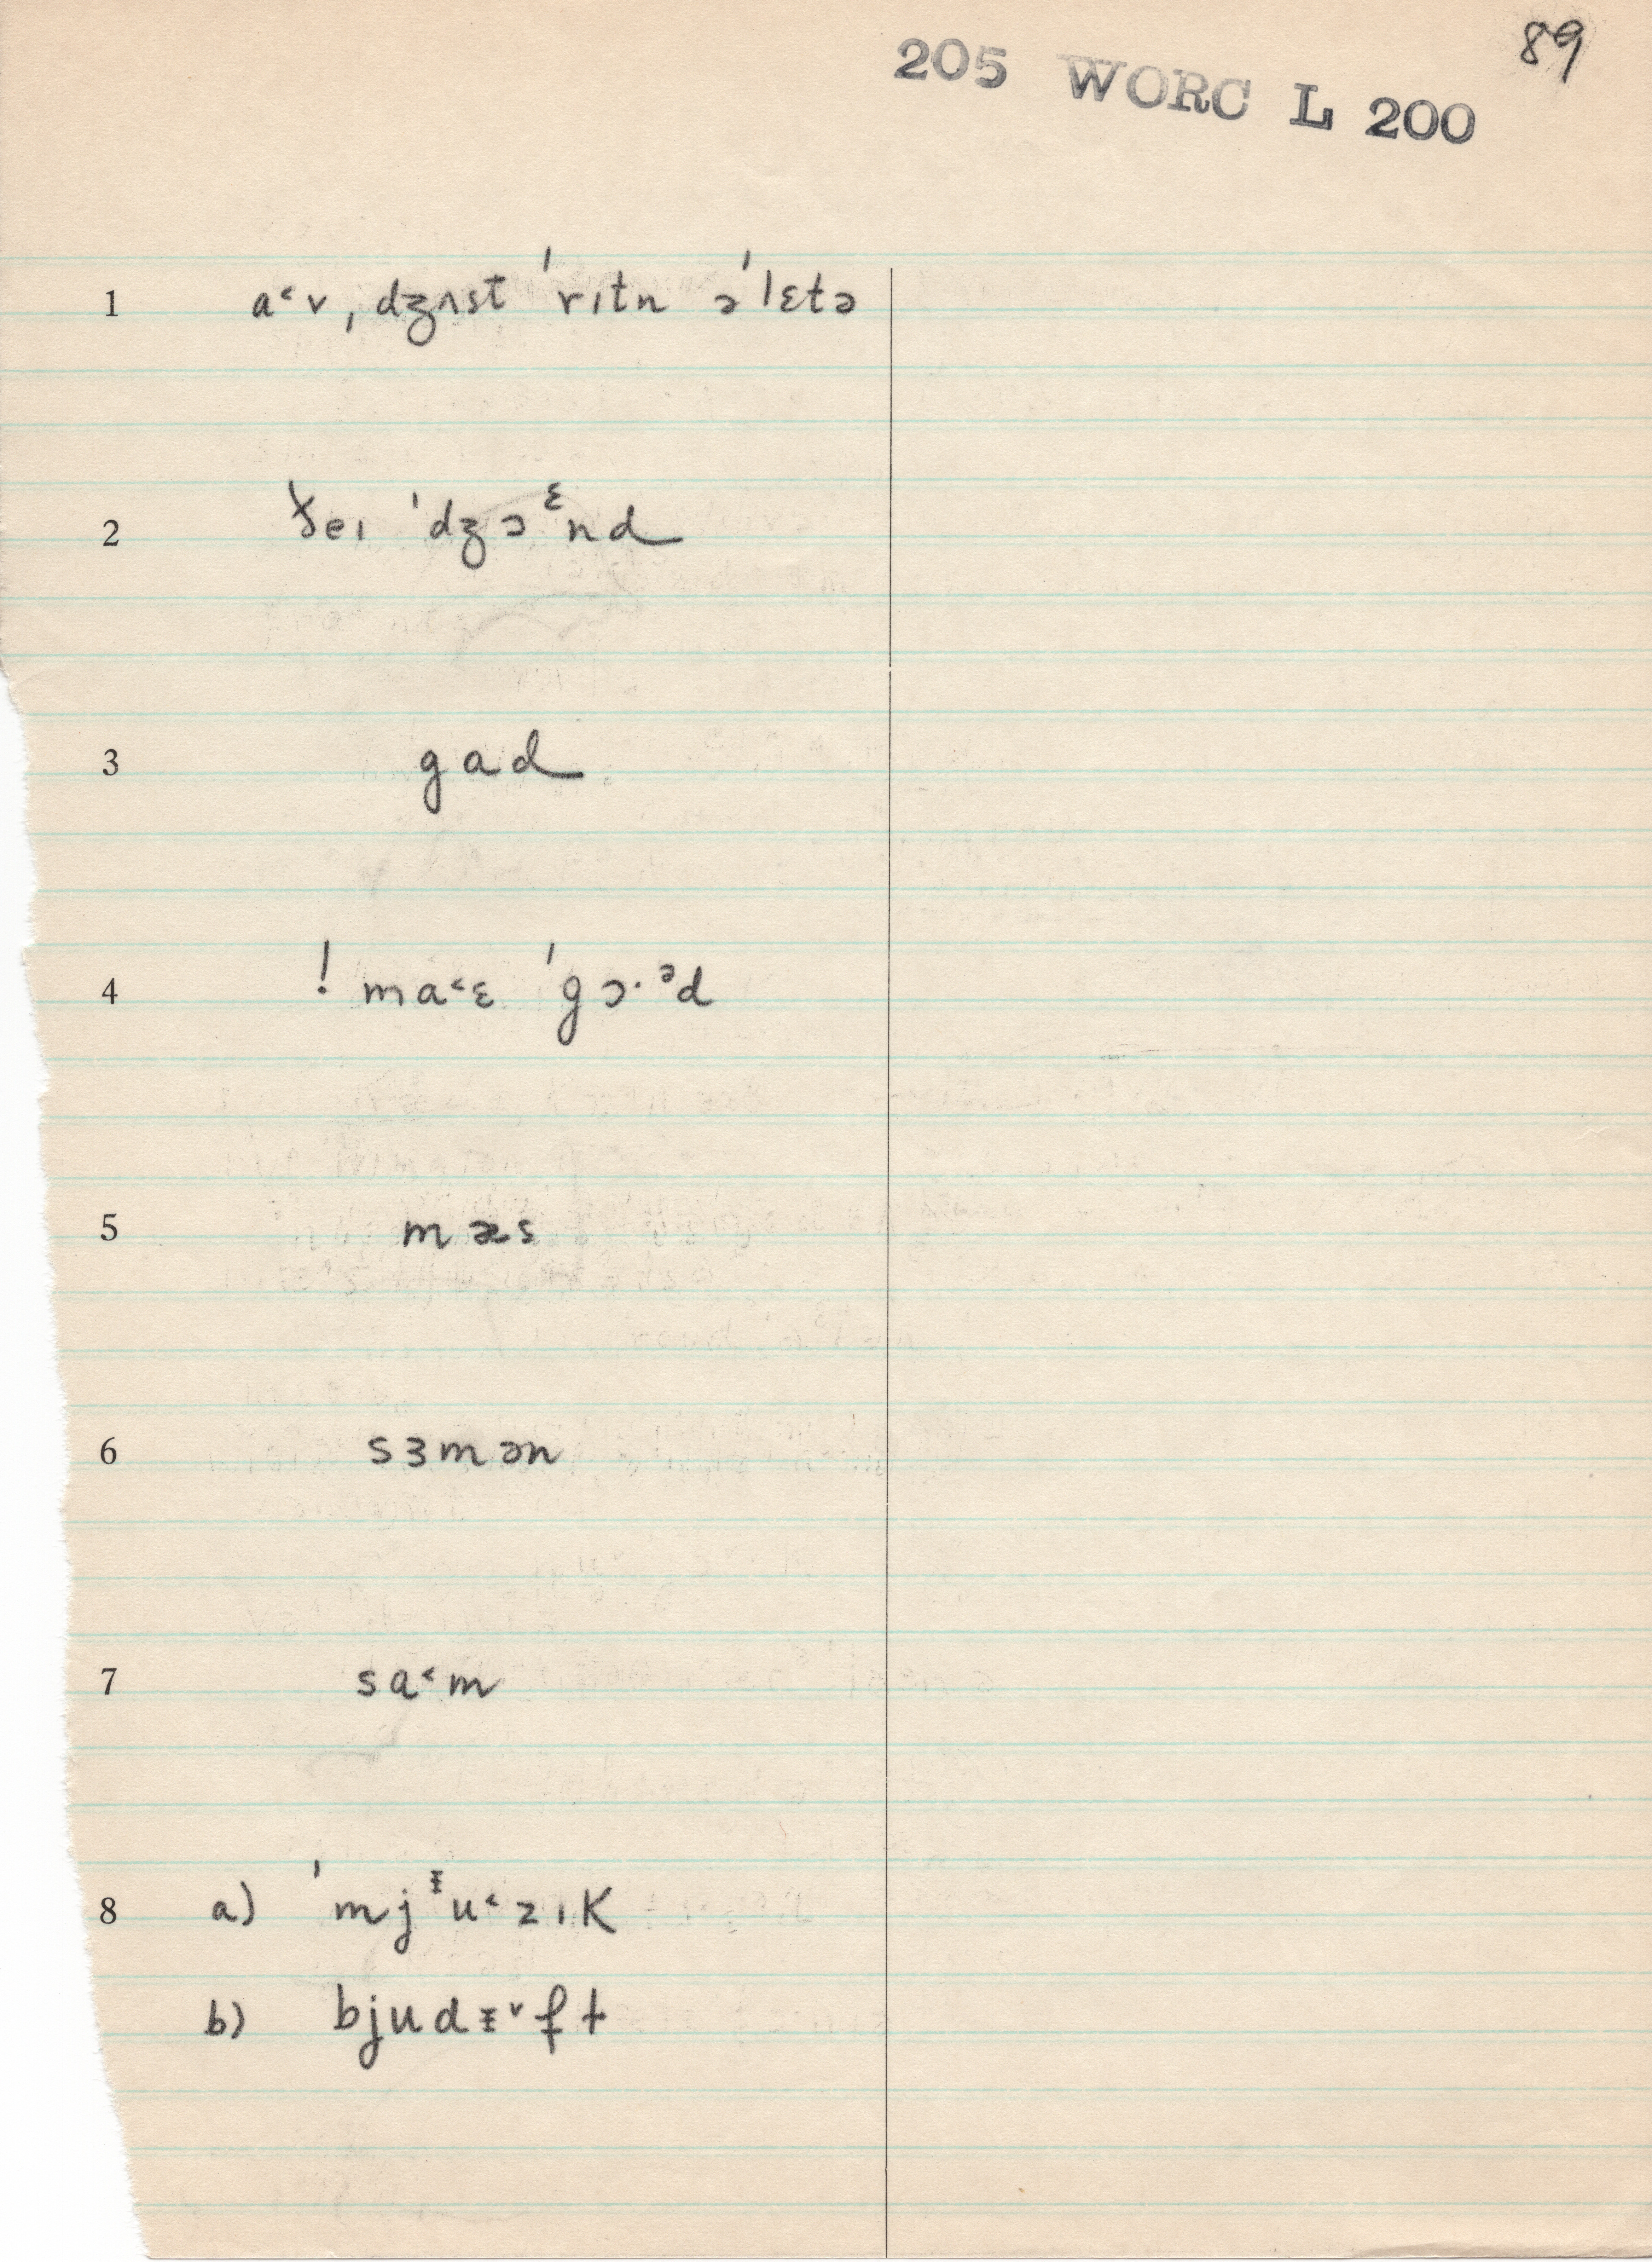 89
205 WORC L 200
1 a˂v, dʒʌst ˈrɪtn əˈlɛtə
2 ðeɪ ˈdʒɔᵋnd
3 gad
4 ! ma˂ɛ ˈgɔ·ᵊd
5 mæs
6 sɜmən
7 sɑ˂m
8 a) ˈmjᵻu˂zɪk
b) bjudᵻ˅fɫ